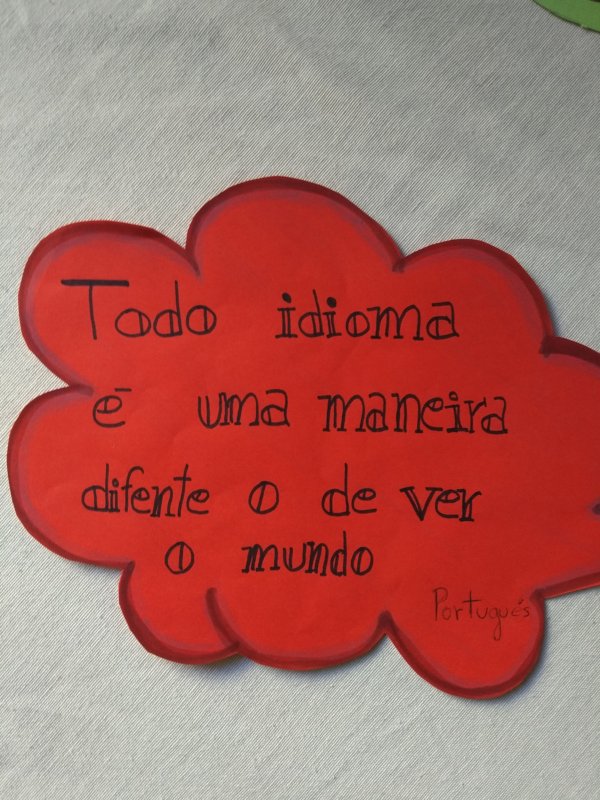 Todo idioma
é uma maneira
difente o de ver
o mundo
Portugués